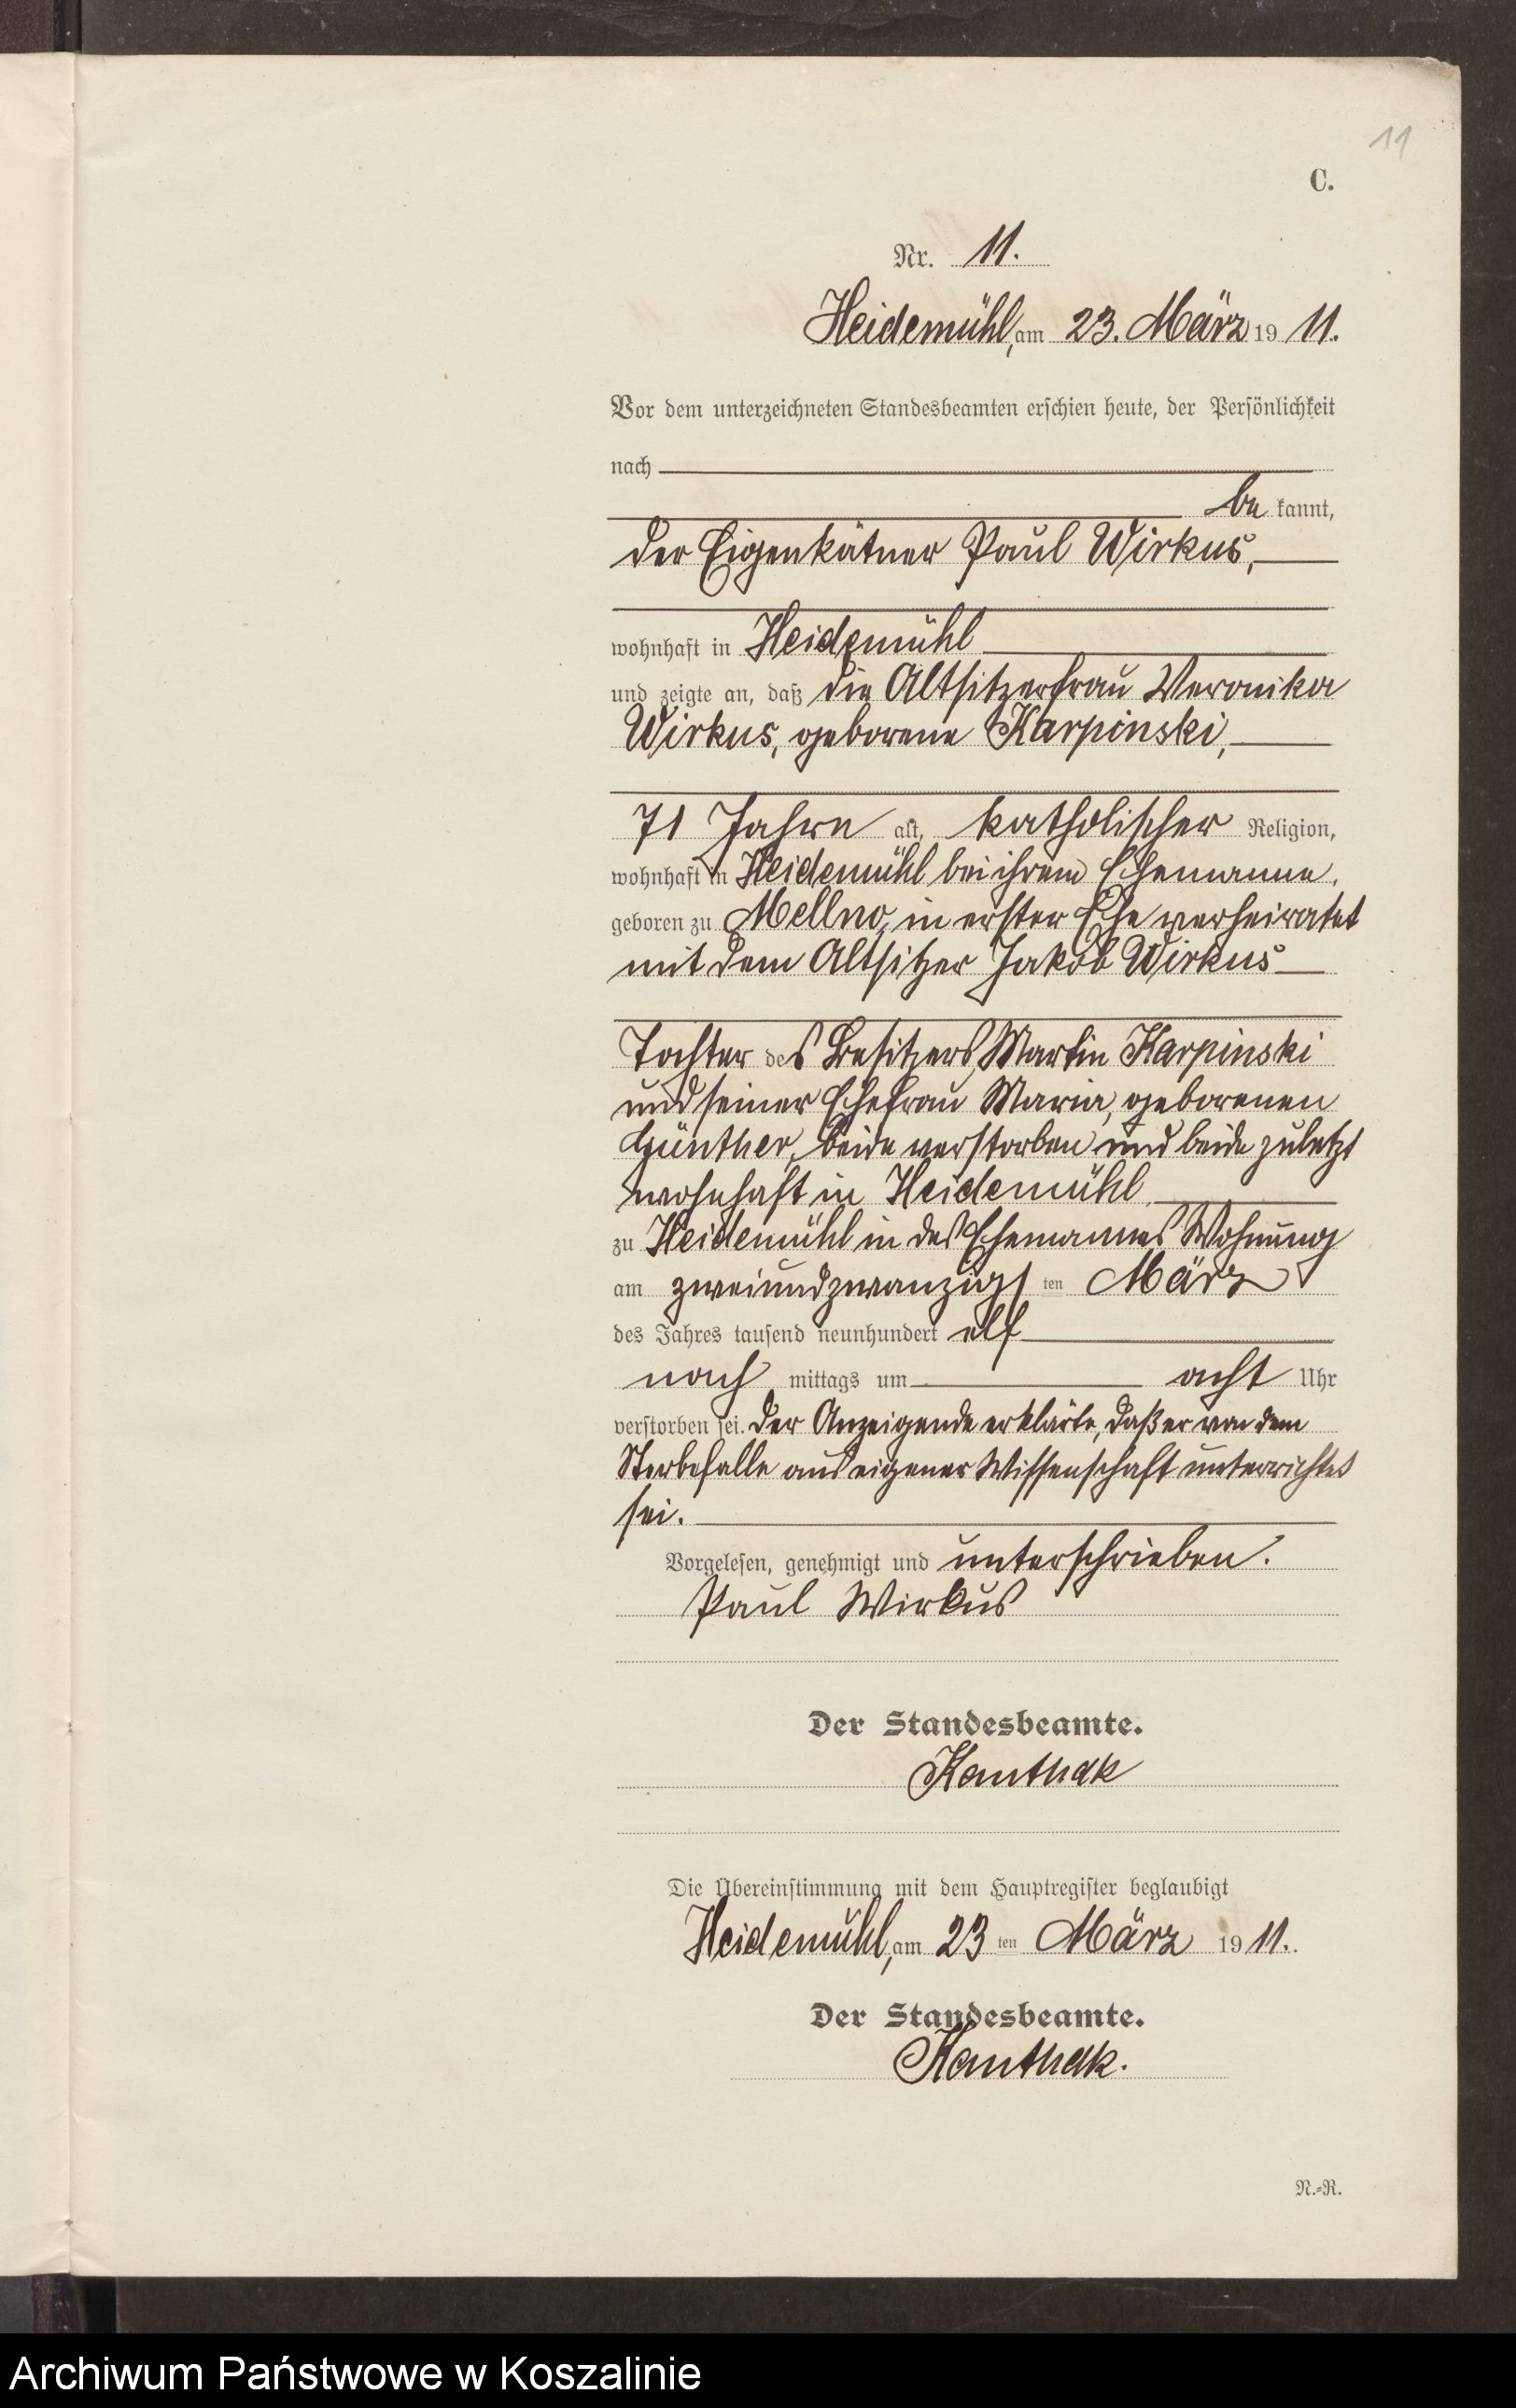 11
C.
Nr. 11.
Heidemühl, am 23. März 19 11.
Vor dem unterzeichneten Standesbeamten erschien heute, der Persönlichkeit
nach
be kannt,
der Eigenkätner Paul Wirkus,
wohnhaft in Heidemühl
und zeigte an, daß die Altsitzerfrau Veronika
Wirkus, geborene Karpinski,
71 Jahre alt, katholischer Religion,
wohnhaft in Heidemühl bei ihrem Ehemanne,
geboren zu Mellno, in erster Ehe verheiratet
mit dem Altsitzer Jakob Wirkus
Tochter des Besitzers Martin Karpinski
und seiner Ehefrau Maria, geborenen
Günther, beide verstorben und beide zuletzt
wohnhaft in Heidemühl
zu Heidemühl in des Ehemannes Wohnung
am zweiundzwanzigs ten März
des Jahres tausend neunhundert elf
nach mittags um acht Uhr
verstorben sei. Der Anzeigende erklärte, daß er von dem
Sterbefalle aus eigener Wissenschaft unterrichtet
sei.
Vorgelesen, genehmigt und unterschrieben.
Paul Wirkus
Der Standesbeamte.
Kanthak
Die Übereinstimmung mit dem Hauptregister beglaubigt
Heidemühl, am 23 ten März 19 11.
Der Standesbeamte.
Kanthak.
N.-R.
Archiwum Państwowe w Koszalinie